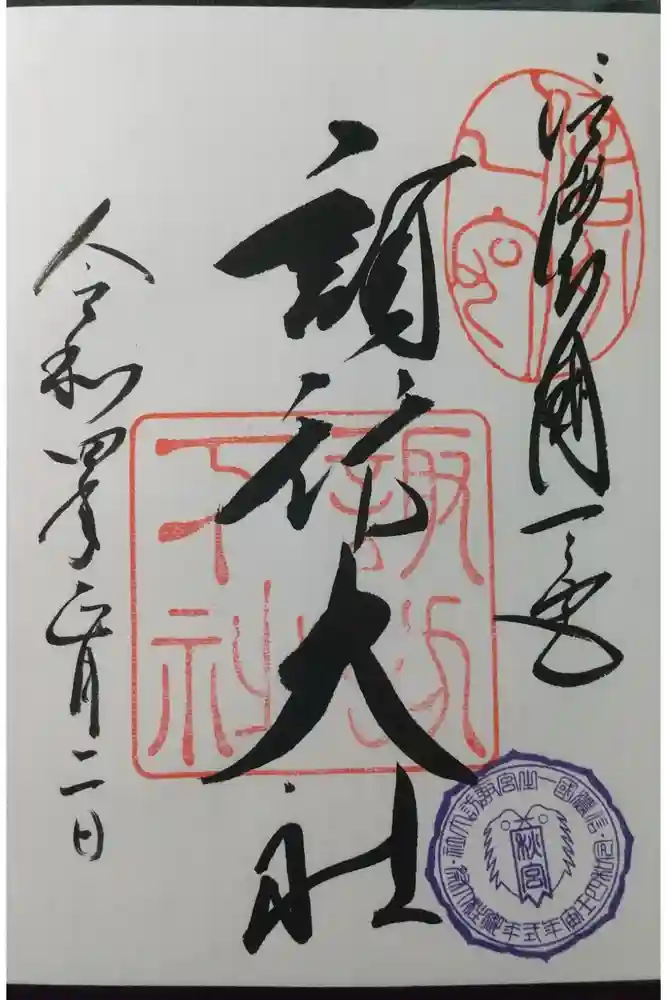 信濃國一之宮
諏訪大社
令和四年正月二日
諏訪
下社
信濃國一之宮諏訪大社
令和四壬寅年式年御柱大祭
秋宮